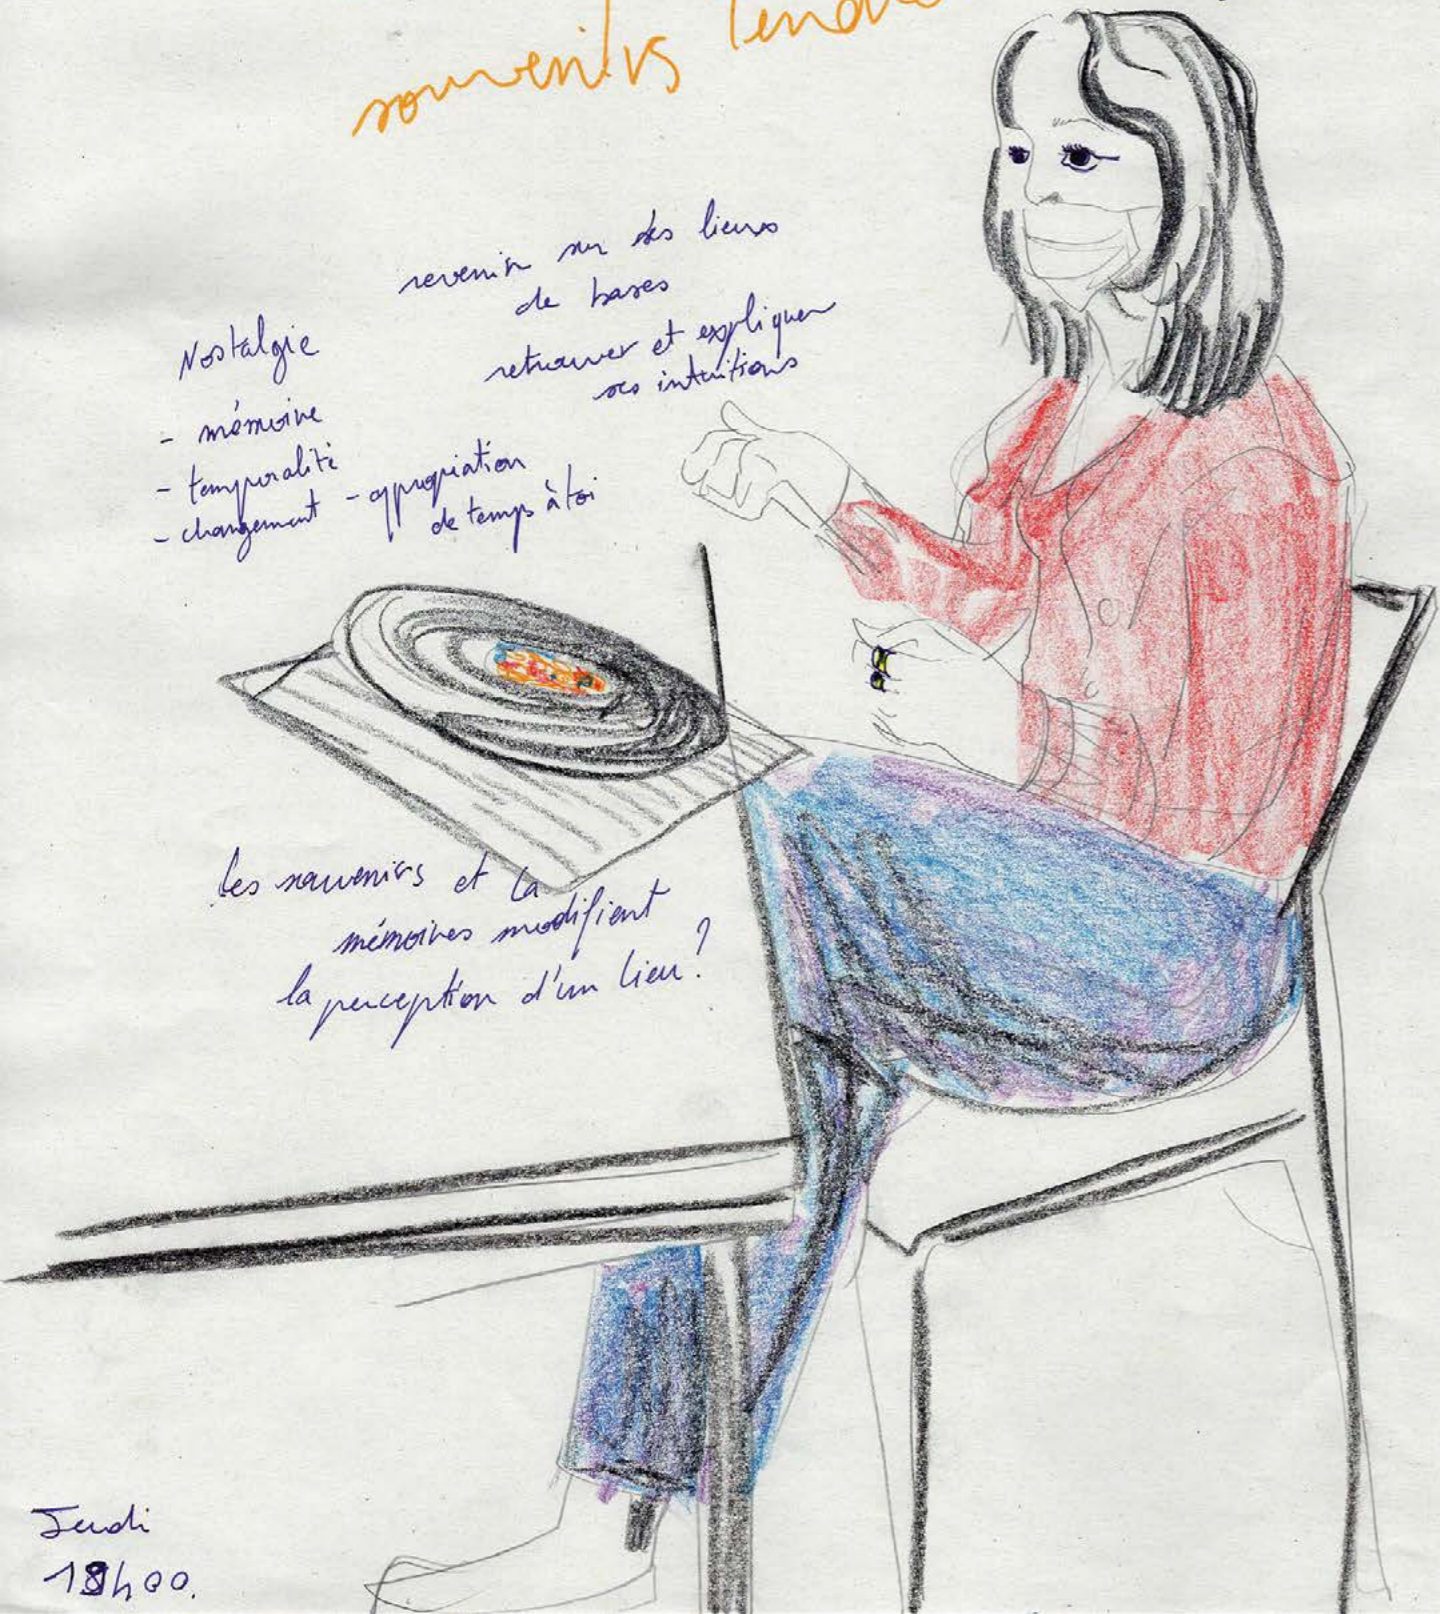 souvenirs
revenir sur des lieux
de bases
retrouver et expliquer
ses intuitions
Nostalgie
- mémoire
- temporalité
- changement - appropriation
de temps à toi
Les souvenirs et la
mémoires modifient
la perception d'un lieu ?
Jeudi
18h00.